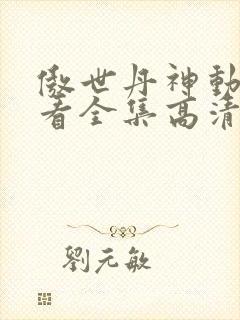 傲世丹神動
看全集高清
劉元敏